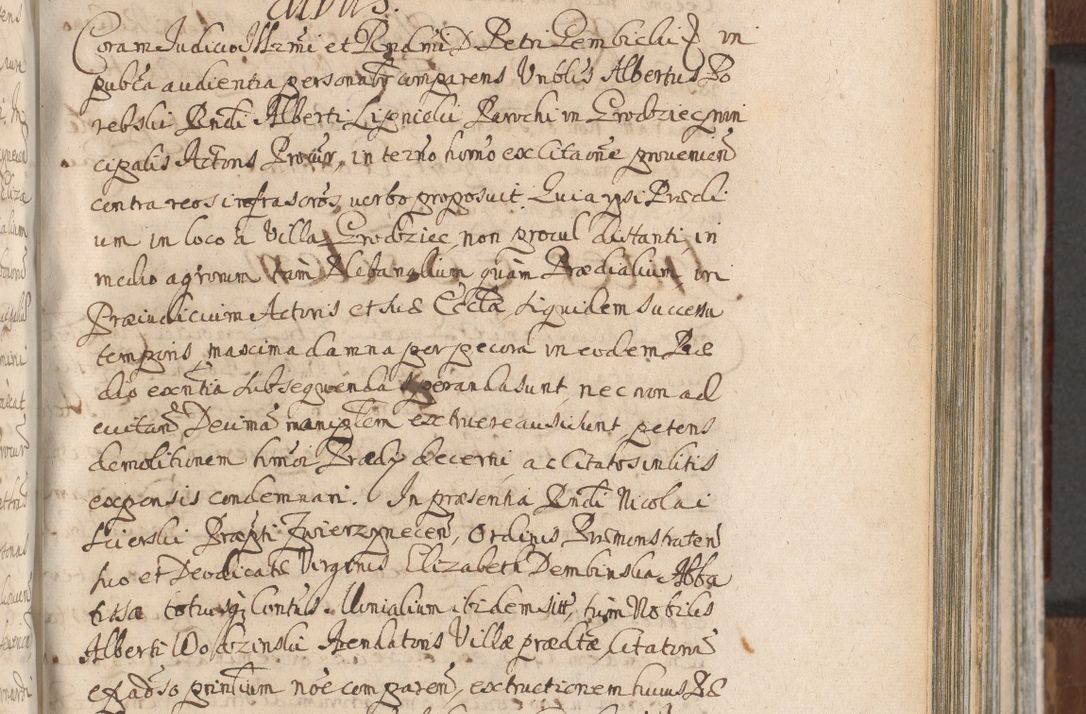 Coram Judicio Illrmi et Rndmi D. Petri Gembicki E in
publca audientia personalr comparens Vnblis Albertus Po
rebskii Rndi Alberti Lipnicelii Parochi in Grodziec prin
cipalis Actoris Procur, in terno homo ex citaone provenien
contra reos infrascros verbo proposuit. Quia ipsi Prædi
um in loco à Villa Grodziec, non procul distanti, in
medio agrorum tam Plebanalium quàm Prædialium in
Præiudicium Actoris et suæ Eccla, siquidem successu
temporis maxima damna per pecora in eodem Præ
dio exentia subsequenda speranda sunt, nec non ad
euitand Decima maniplem extruere ausi sunt, petens
demolitionem hmoi Prædy decerni ac citatos in litis
expensis condemnari. In præsentia Rndi Nicolai
Scierskii Præpti Zwierzynecen, Ordinis Præmonstraten
suo et Deodicatæ Virginis Elizabeth Dembinska Abba
tissæ totiusq Contus Monialium ibidem sitt, tùm Nobilis
Alberti Wodzinskii Arendatoris Villæ prædtæ, Citatorum
ex adso printium noe comparen, extructionem huius Præ